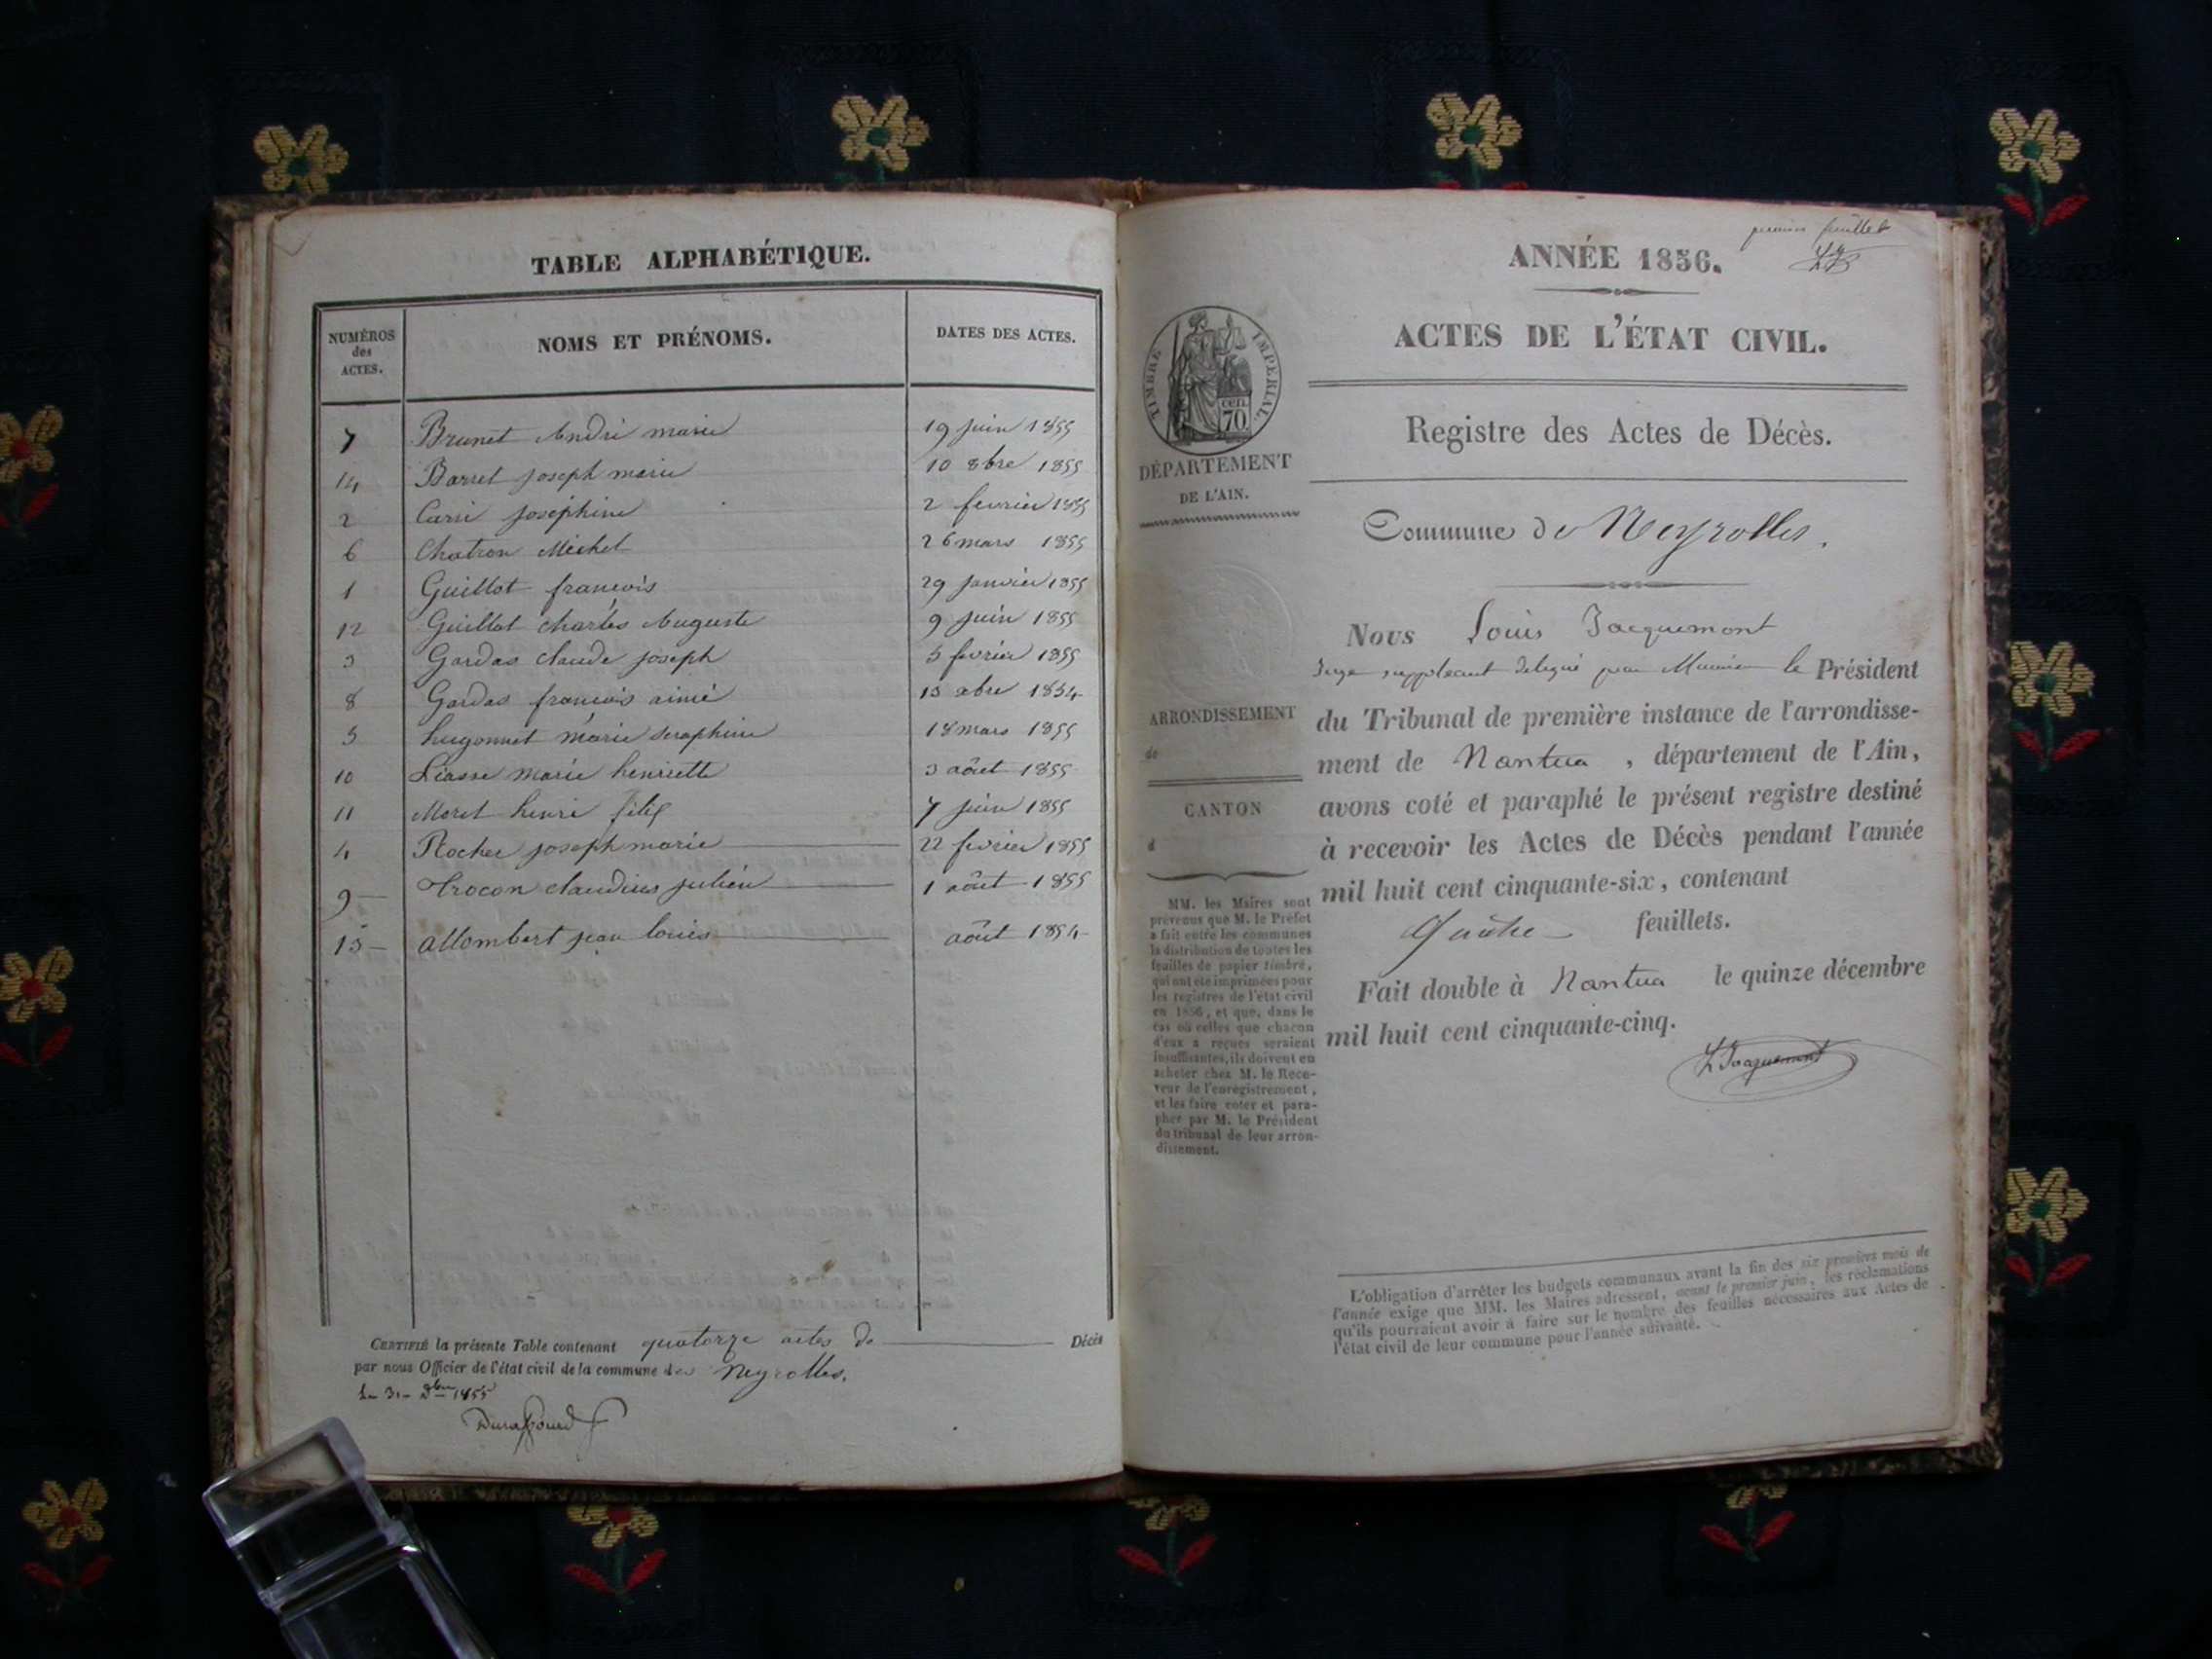 TABLE ALPHABÉTIQUE.
NUMÉROS des ACTES. NOMS ET PRÉNOMS. DATES DES ACTES.
7 Brunet André marie 19 juin 1855
14 Barret joseph marie 10 8bre 1855
2 joséphine 2 fevrier 1855
6 Chatron Michel 26 mars 1855
1 Guillot francois 29 janvier 1855
12 Guillot charles Auguste 9 juin 1855
3 Gardas claude joseph 5 fevrier 1855
8 Gardas francois aimé 1854
5 hugonnet marie seraphine 18 mars 1855
10 marie henriette 3 aôut 1855
11 Moret henri 7 juin 1855
4 Rochee joseph marie 22 fevrier 1855
9 Trocon claudius julien 1 aôut 1855
13 allombert jean louis aôut 1854
CERTIFIÉ la présente Table contenant quatorze actes de Décès
par nous Officier de l'état civil de la commune des Neyrolles.
Le 31 1855
premier feuillet
ANNÉE 1856.
ACTES DE L'ÉTAT CIVIL.
Registre des Actes de Décès.
TIMBRE IMPÉRIAL.
70 cen.
DÉPARTEMENT
DE L'AIN.
ARRONDISSEMENT
de
CANTON
d
MM. les Maires sont
prévenus que M. le Préfet
a fait entre les communes
la distribution de toutes les
feuilles de papier timbré,
qui ont été imprimées pour
les registres de l'état civil
en 1856, et que, dans le
cas où celles que chacun
d'eux a reçues seraient
insuffisantes, ils doivent en
acheter chez M. le Rece-
veur de l'enregistrement,
et les faire coter et para-
pher par M. le Président
du tribunal de leur arron-
dissement.
Commune de Neyrolles.
Nous Louis Jacquemont
Juge suppléant délégué par Monsieur le Président
du Tribunal de première instance de l'arrondisse-
ment de Nantua, département de l'Ain,
avons coté et paraphé le présent registre destiné
à recevoir les Actes de Décès pendant l'année
mil huit cent cinquante-six, contenant
Quatre feuillets.
Fait double à Nantua le quinze décembre
mil huit cent cinquante-cinq.
L Jacquemont
L'obligation d'arrêter les budgets communaux avant la fin des six premiers mois de
l'année exige que MM. les Maires adressent, avant le premier juin, les réclamations
qu'ils pourraient avoir à faire sur le nombre des feuilles nécessaires aux Actes de
l'état civil de leur commune pour l'année suivante.